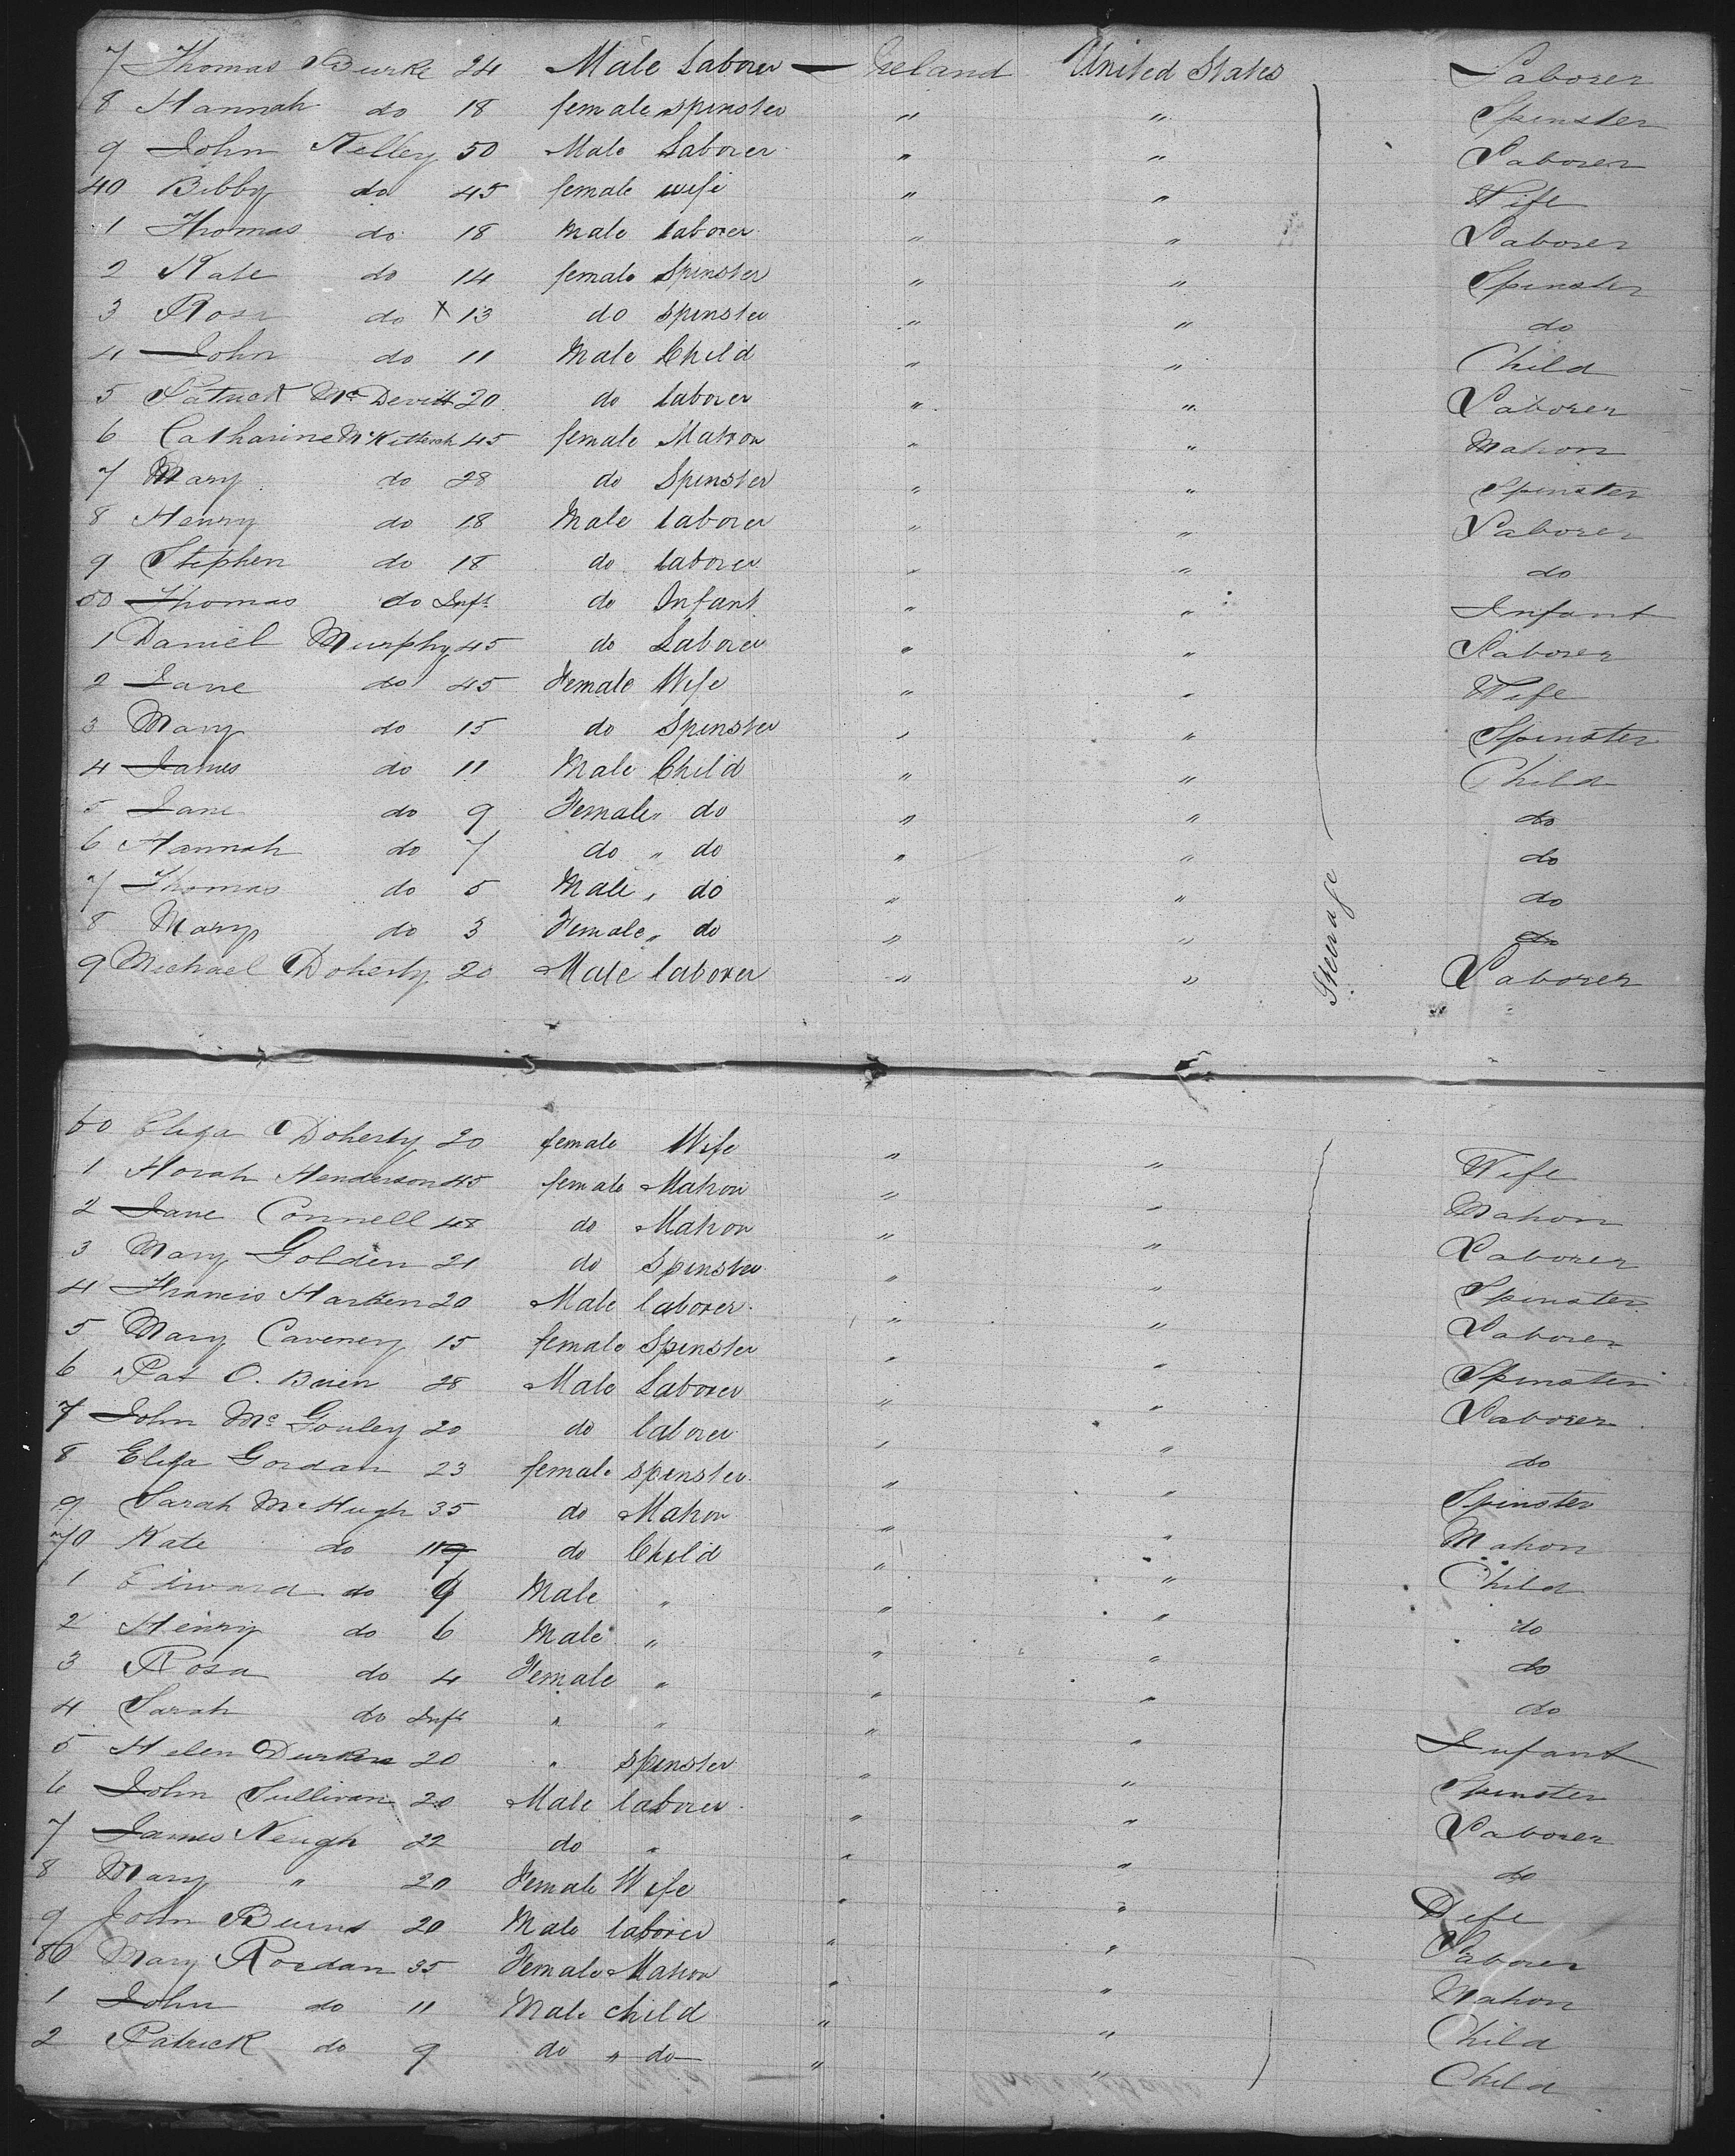 7 Thomas Burke 24 Male Laborer — Ireland United States Laborer
8 Hannah do 18 female spinster " " Spinster
9 John Kelley 50 Male Laborer " " Laborer
40 Bibby do 45 female wife " " Wife
1 Thomas do 18 Male laborer " " Laborer
2 Kate do 14 female Spinster " " Spinster
3 Rosa do X 13 do spinster " " do
4 John do 11 Male Child " " Child
5 Patrick McDevitt 20 do laborer " " Laborer
6 Catharine McKittrich 45 female Matron " " Matron
7 Mary do 28 do Spinster " " Spinster
8 Henry do 18 Male laborer " " Laborer
9 Stephen do 18 do laborer " " do
50 Thomas do Inft do Infant " " Infant
1 Daniel Murphy 45 do Laborer " " Laborer
2 Jane do 45 Female Wife " " Wife
3 Mary do 15 do Spinster " " Spinster
4 James do 11 Male Child " " Child
5 Jane do 9 Female " do " " do
6 Hannah do 7 do " do " " do
7 Thomas do 5 Male " do " " do
8 Mary do 3 Female " do " " do
9 Michael Doherty 20 Male laborer " " Laborer
Steerage
60 Eliza Doherty 20 female Wife " " Wife
1 Norah Henderson 45 female Matron " " Matron
2 Jane Connell 48 do Matron " " Laborer
3 Mary Golden 21 do Spinster " " Spinster
4 Francis Harken 20 Male laborer " " Laborer
5 Mary Caveney 15 female Spinster " " Spinster
6 Pat O. Brien 28 Male Laborer " " Laborer
7 John McGouley 20 do laborer " " do
8 Eliza Gordan 23 female spinster " " Spinster
9 Sarah McHugh 35 do Matron " " Matron
70 Kate do 11 do Child " " Child
1 Edward do 9 Male " " " do
2 Henry do 6 Male " " " do
3 Rosa do 4 Female " " " do
4 Sarah do Inft " " " " Infant
5 Helen Durken 20 " spinster " " Spinster
6 John Sullivan 20 Male laborer " " Laborer
7 James Keugh 22 do " " " do
8 Mary " 20 Female Wife " " Wife
9 John Burns 20 Male laborer " " Laborer
80 Mary Roedan 35 Female Matron " " Matron
1 John do 11 Male child " " Child
2 Patrick do 9 do " do " " Child